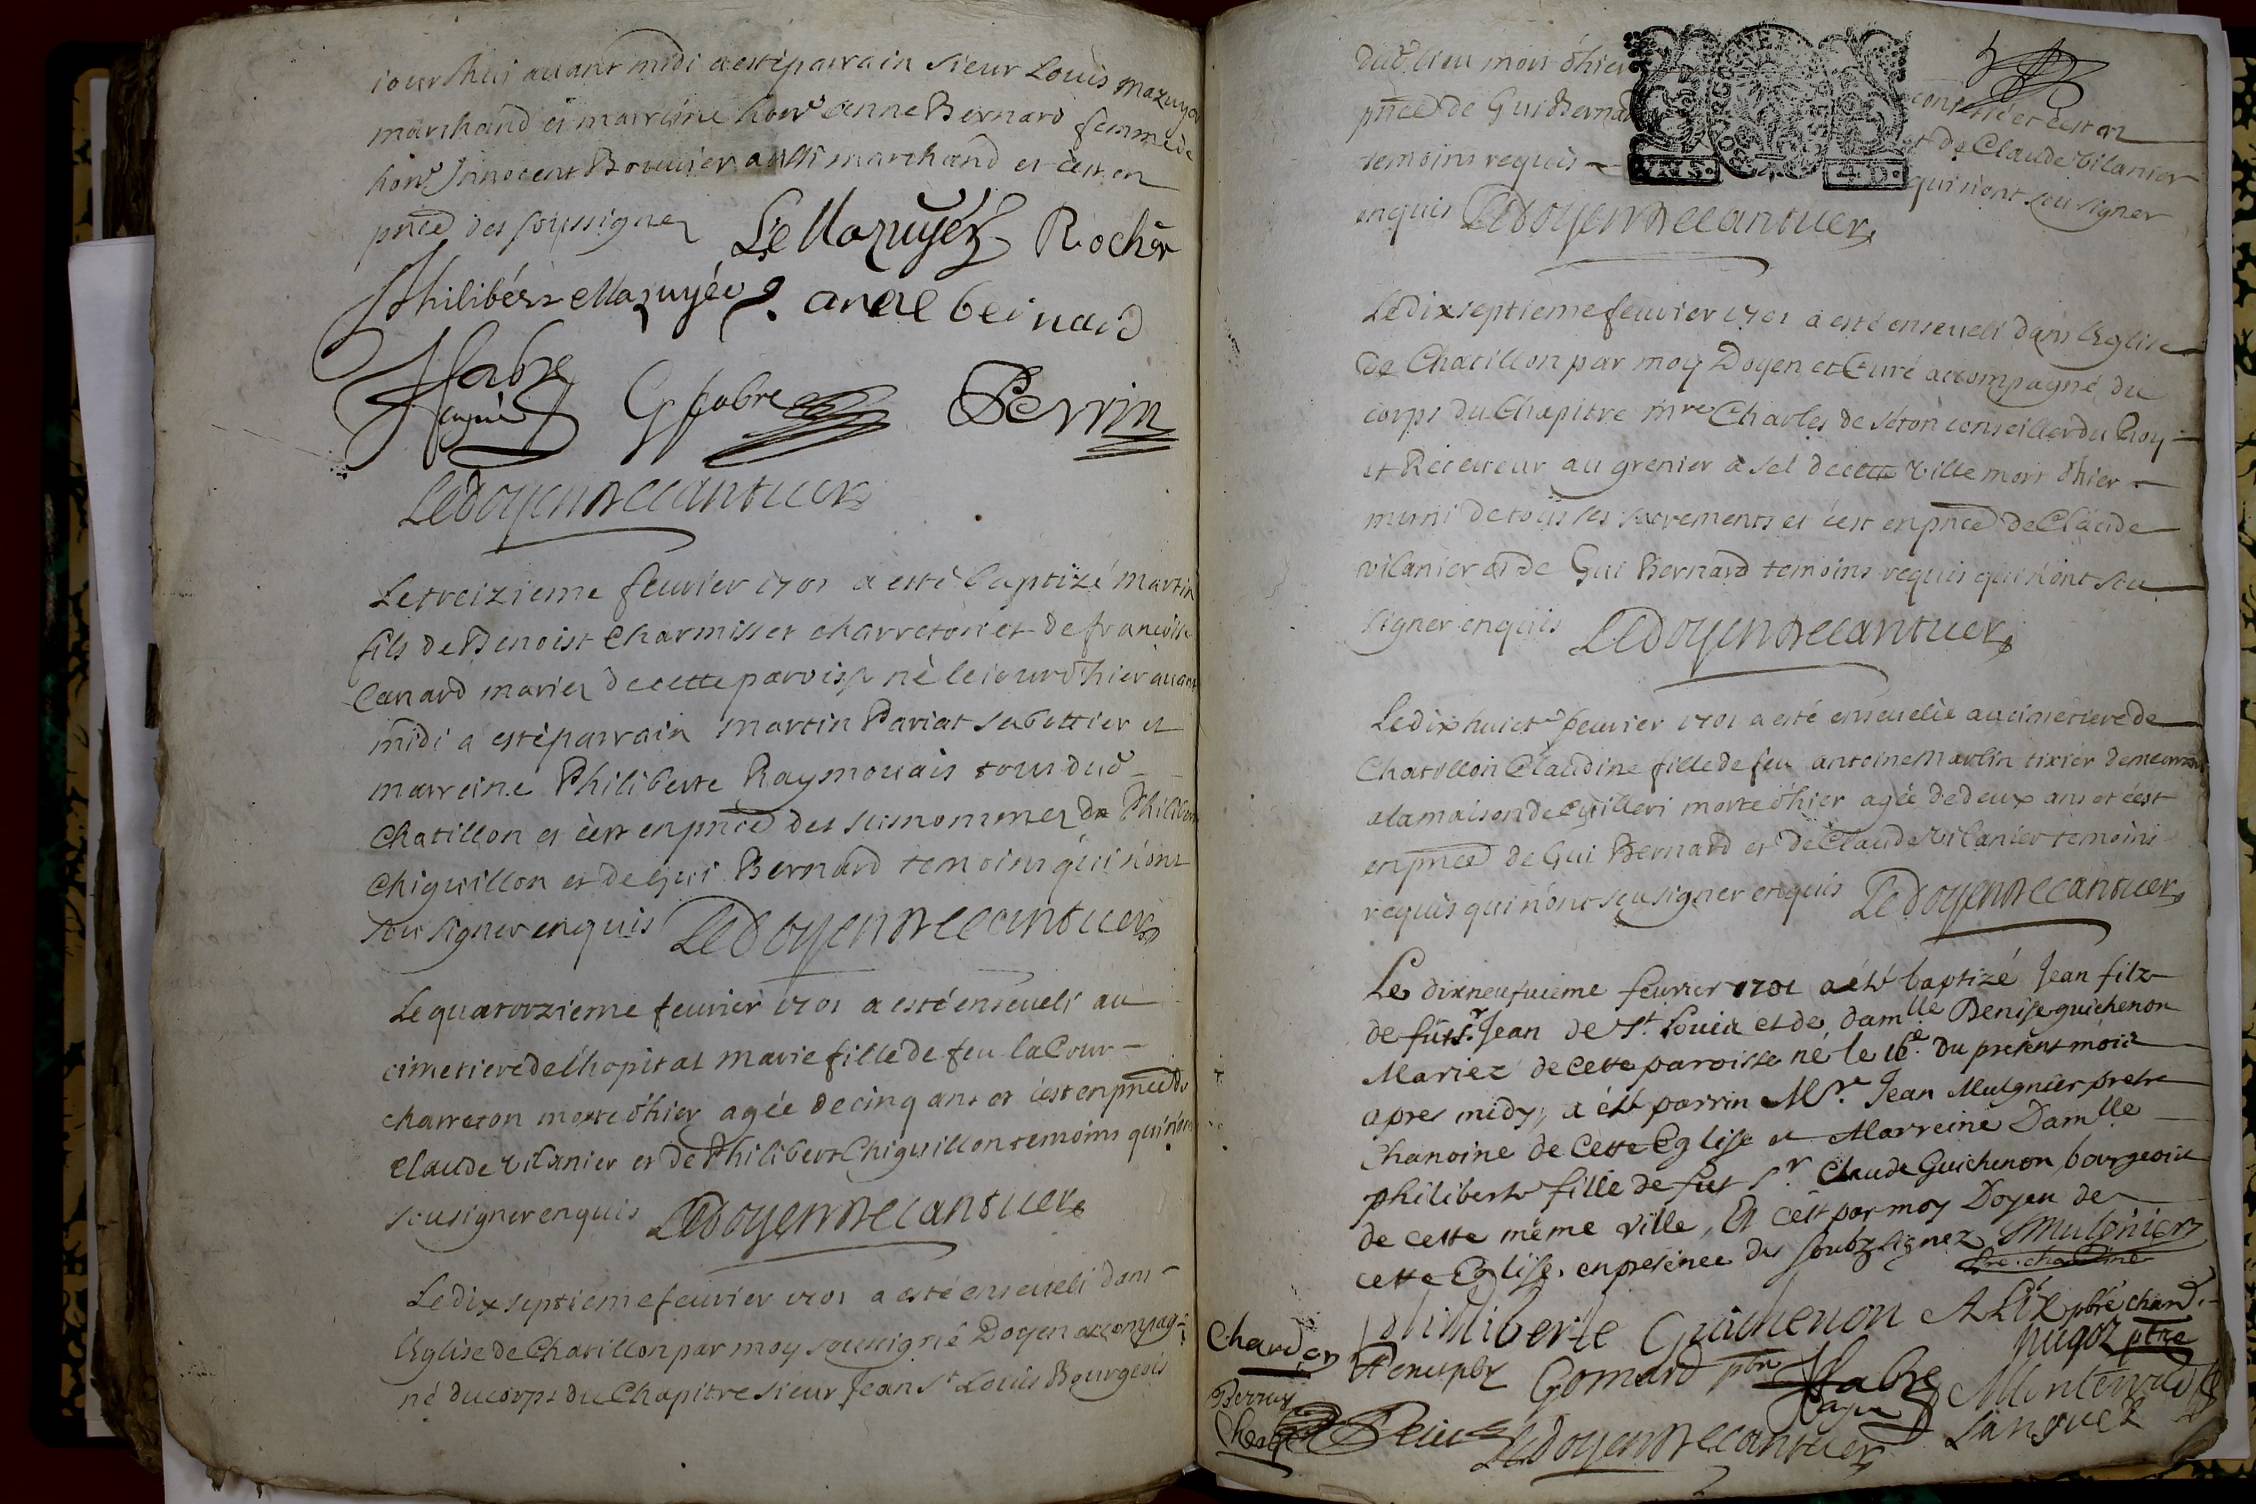 jourdhui avant midi a esté parrain sieur Louis Mazuyer
marchand et marreine honê anne Bernard femme de
honê Innocent Bouuier aussi marchand et c'est en
pnce des soussignez
Le Mazuyer Rocher
Philibert Mazuyer anne bernard
Fabre G fabre Perrin
Le doyen
Le treizieme feurier 1701 a esté baptizé Martin
fils de Benoist Charmisset charreton et de francoise
Canard mariez de cette paroisse né le jour d'hier auant
midi a esté parrain Martin Pariat sabottier et
marreine Philiberte Raymonais tous dud
Chatillon et c'est en pnce des susnommez de Philibert
Chiguillon et de Gui Bernard temoins qui n'ont
sceu signer enquis Le doyen
Le quatorzieme feurier 1701 a esté enseueli au
cimetiere de l'hopital Marie fille de feu la Cour
charreton morte d'hier agée de cinq ans et c'est en pnce de
Claude Vilanier et de Philibert Chiguillon temoins qui n'ont
sceu signer enquis Le doyen
Le dix septieme feurier 1701 a esté enseueli dans
l'Eglise de Chatillon par moy soussigné Doyen accompag-
né du corps du Chapitre sieur Jean St Louis Bourgeois
dud. lieu mort d'hier et c'est en
pnce de Gui Bernard et de Claude Vilanier
temoins requis qui n'ont sceu signer
enquis Le doyen
Le dix septieme feurier 1701 a esté enseueli dans l'Eglise
de Chatillon par moy Doyen et Curé accompagné du
corps du Chapitre mre Charles de Seton conseiller du Roy
et Receueur au grenier a sel de cette ville mort d'hier
muni de tous les sacrements et c'est en pnce de Claude
vilanier et de Gui Bernard temoins requis qui n'ont sceu
signer enquis Le doyen
Le dix huict feurier 1701 a esté enseuelie au cimetiere de
Chatillon Claudine fille de feu antoine Marlin tixier demeurant
a la maison de Cuilleri morte d'hier agée de deux ans et c'est
en pnce de Gui Bernard et de Claude Vilanier temoins
requis qui n'ont sceu signer enquis Le doyen
Le dixneufuieme feurier 1701 a été baptizé Jean filz
de fut Sr. Jean de St. Louis et de damlle Denise guichenon
Mariez de cette paroisse né le 16e. du present mois
apres midy, a été parrin Mr. Jean Mulgnier pretre
Chanoine de cette Eglise et Marreine Damlle
philiberte fille de fut Sr. Claude Guichenon bourgeois
de cette méme ville, Et c'ést par moy Doyen de
cette Eglise. en présence des soubzsignez Mulgnier
Philiberte Guichenon Alix pbre chan.
Gomard pbre Fabre
Le doyen